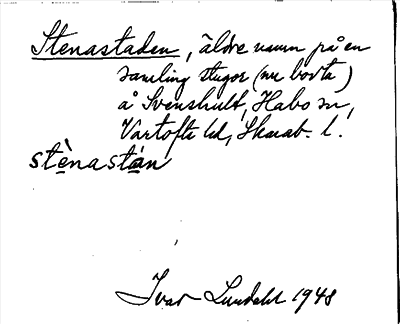 Stenastaden, äldre namn på en
samling stugor (nu borta)
å Svenshult, Habo sn,
Vartofta hd, Skarab. l.
stènastán
Ivar Lundahl 1948